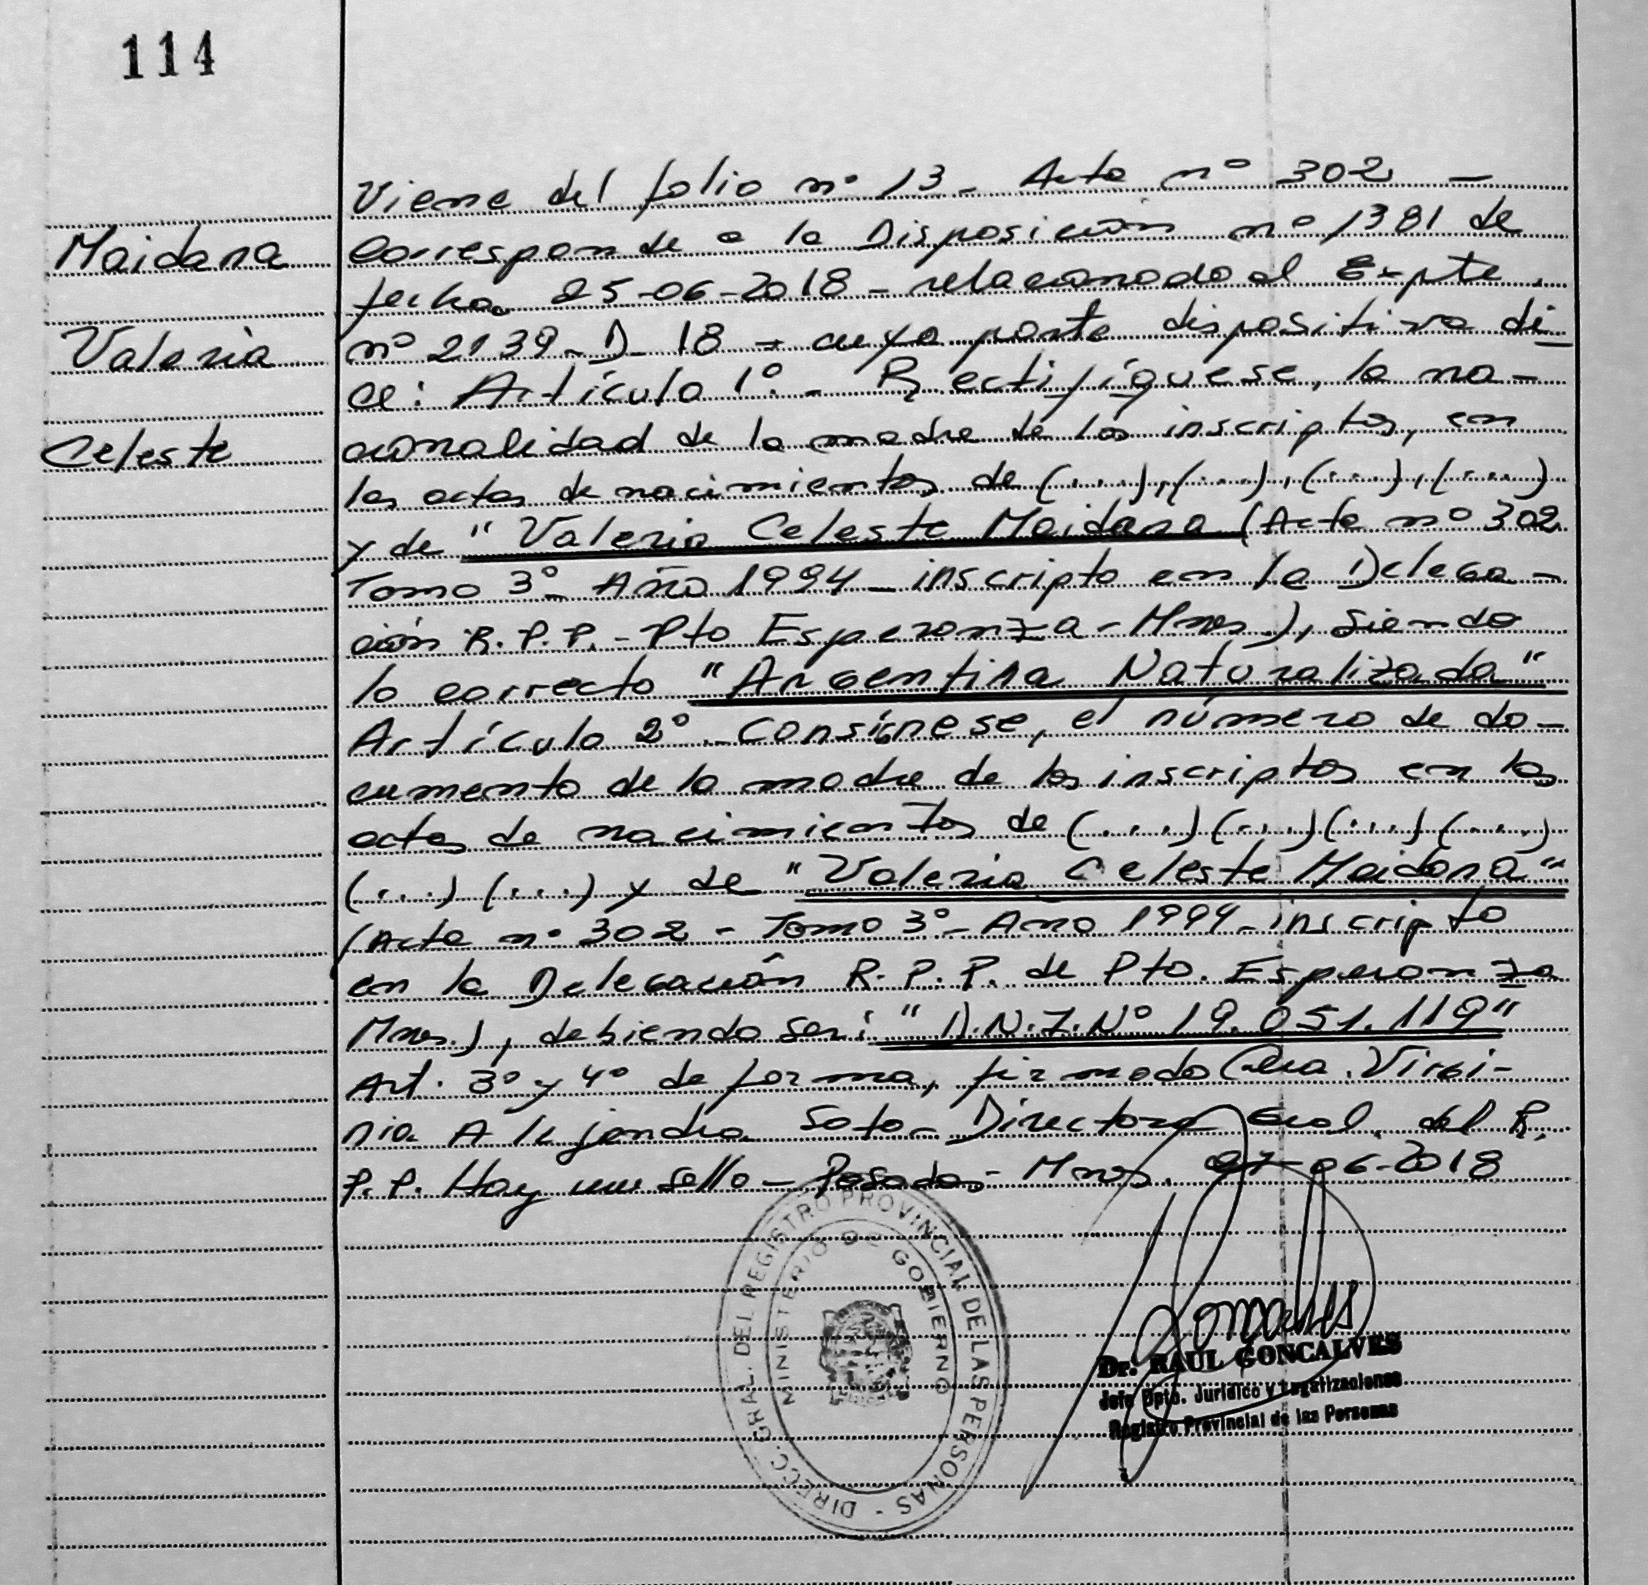 114
Maidana
Valeria
Celeste
Viene del folio nº 13 - Acta nº 302 -
Corresponde a la Disposición nº 1381 de
fecha 25-06-2018 - relacionado al Expte.
nº 2139-D-18 - cuya parte dispositiva di-
ce: Artículo 1º - Rectifíquese, la na-
cionalidad de la madre de los inscriptos, en
las actas de nacimientos de (....), (....), (....), (....)
y de "Valeria Celeste Maidana (Acta nº 302
Tomo 3º - Año 1994 - inscripto en la Delega-
ción R.P.P. - Pto Esperanza - Mnes.), siendo
lo correcto "Argentina Naturalizada"
Artículo 2º - Consígnese, el número de do-
cumento de la madre de los inscriptos en las
actas de nacimientos de (....) (....) (....) (....)
(....) (....) y de "Valeria Celeste Maidana"
(Acta nº 302 - Tomo 3º - Año 1994 - inscripto
en la Delegación R.P.P. de Pto. Esperanza
Mnes.), debiendo ser: "D.N.I. Nº 19.051.119"
Art. 3º y 4º de forma, firmado Virgi-
nia Alejandra Soto - Directora Gral. del R.
P.P. Hay un sello - Posadas - Mnes. 27-06-2018
DIRECC. GRAL. DEL REGISTRO PROVINCIAL DE LAS PERSONAS -
MINISTERIO DE GOBIERNO
Dr. RAUL GONCALVES
Jefe Dpto. Jurídico y Legalizaciones
Registro Provincial de las Personas